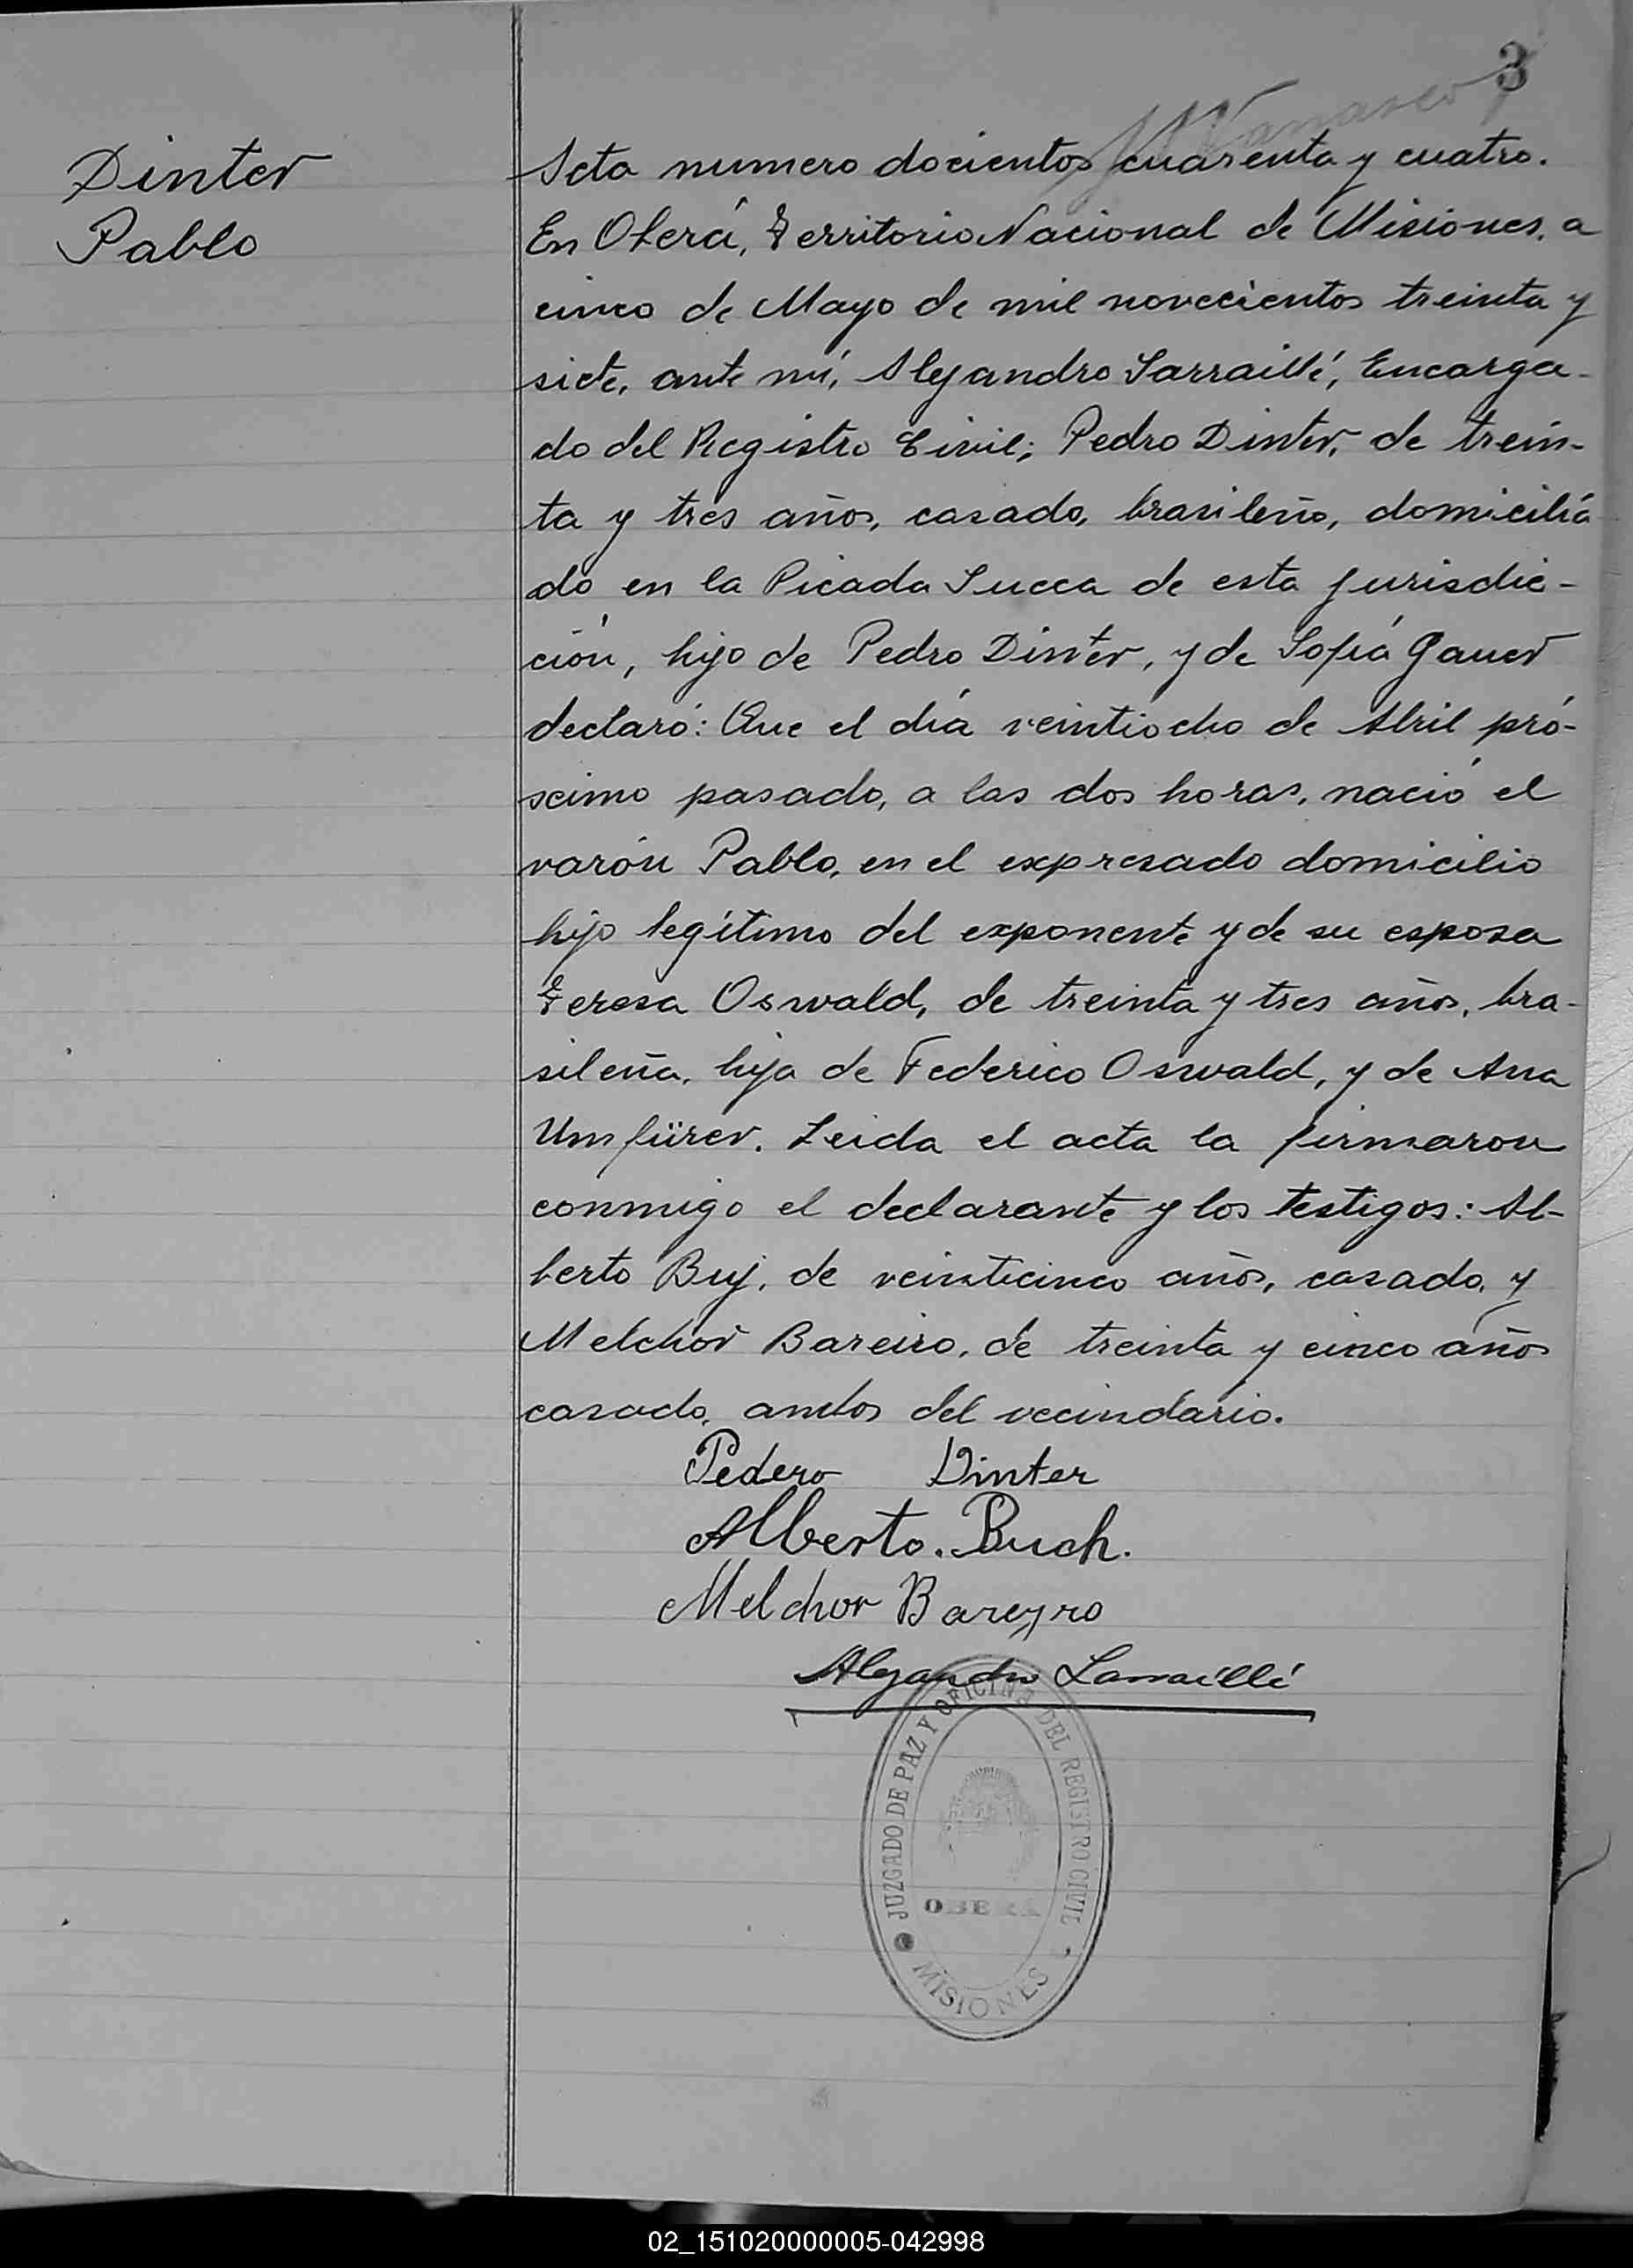 3
Dinter
Pablo
Acta numero docientos cuarenta y cuatro.
En Oberá, Territorio Nacional de Misiones, a
cinco de Mayo de mil novecientos treinta y
siete, ante mí, Alejandro Larraillé, Encarga-
do del Registro Civil; Pedro Dinter, de trein-
ta y tres años, casado, brasileño, domicilia
do en la Picada Sueca de esta jurisdic-
ción, hijo de Pedro Dinter, y de Sofía Gauer
declaró: Que el día veintiocho de Abril pró-
scimo pasado, a las dos horas, nació el
varón Pablo, en el expresado domicilio
hijo legítimo del exponente y de su esposa
Teresa Oswald, de treinta y tres años, bra-
sileña, hija de Federico Oswald, y de Ana
Umfürer. Leida el acta la firmaron
conmigo el declarante y los testigos: Al-
berto Buj, de veinticinco años, casado, y
Melchor Bareiro, de treinta y cinco años
casado, ambos del vecindario.
Pedero Dinter
Alberto. Buch.
Melchor Bareyro
Alejandro Larraillé
JUZGADO DE PAZ Y OFICINA DEL REGISTRO CIVIL
OBERA
MISIONES
02_151020000005-042998